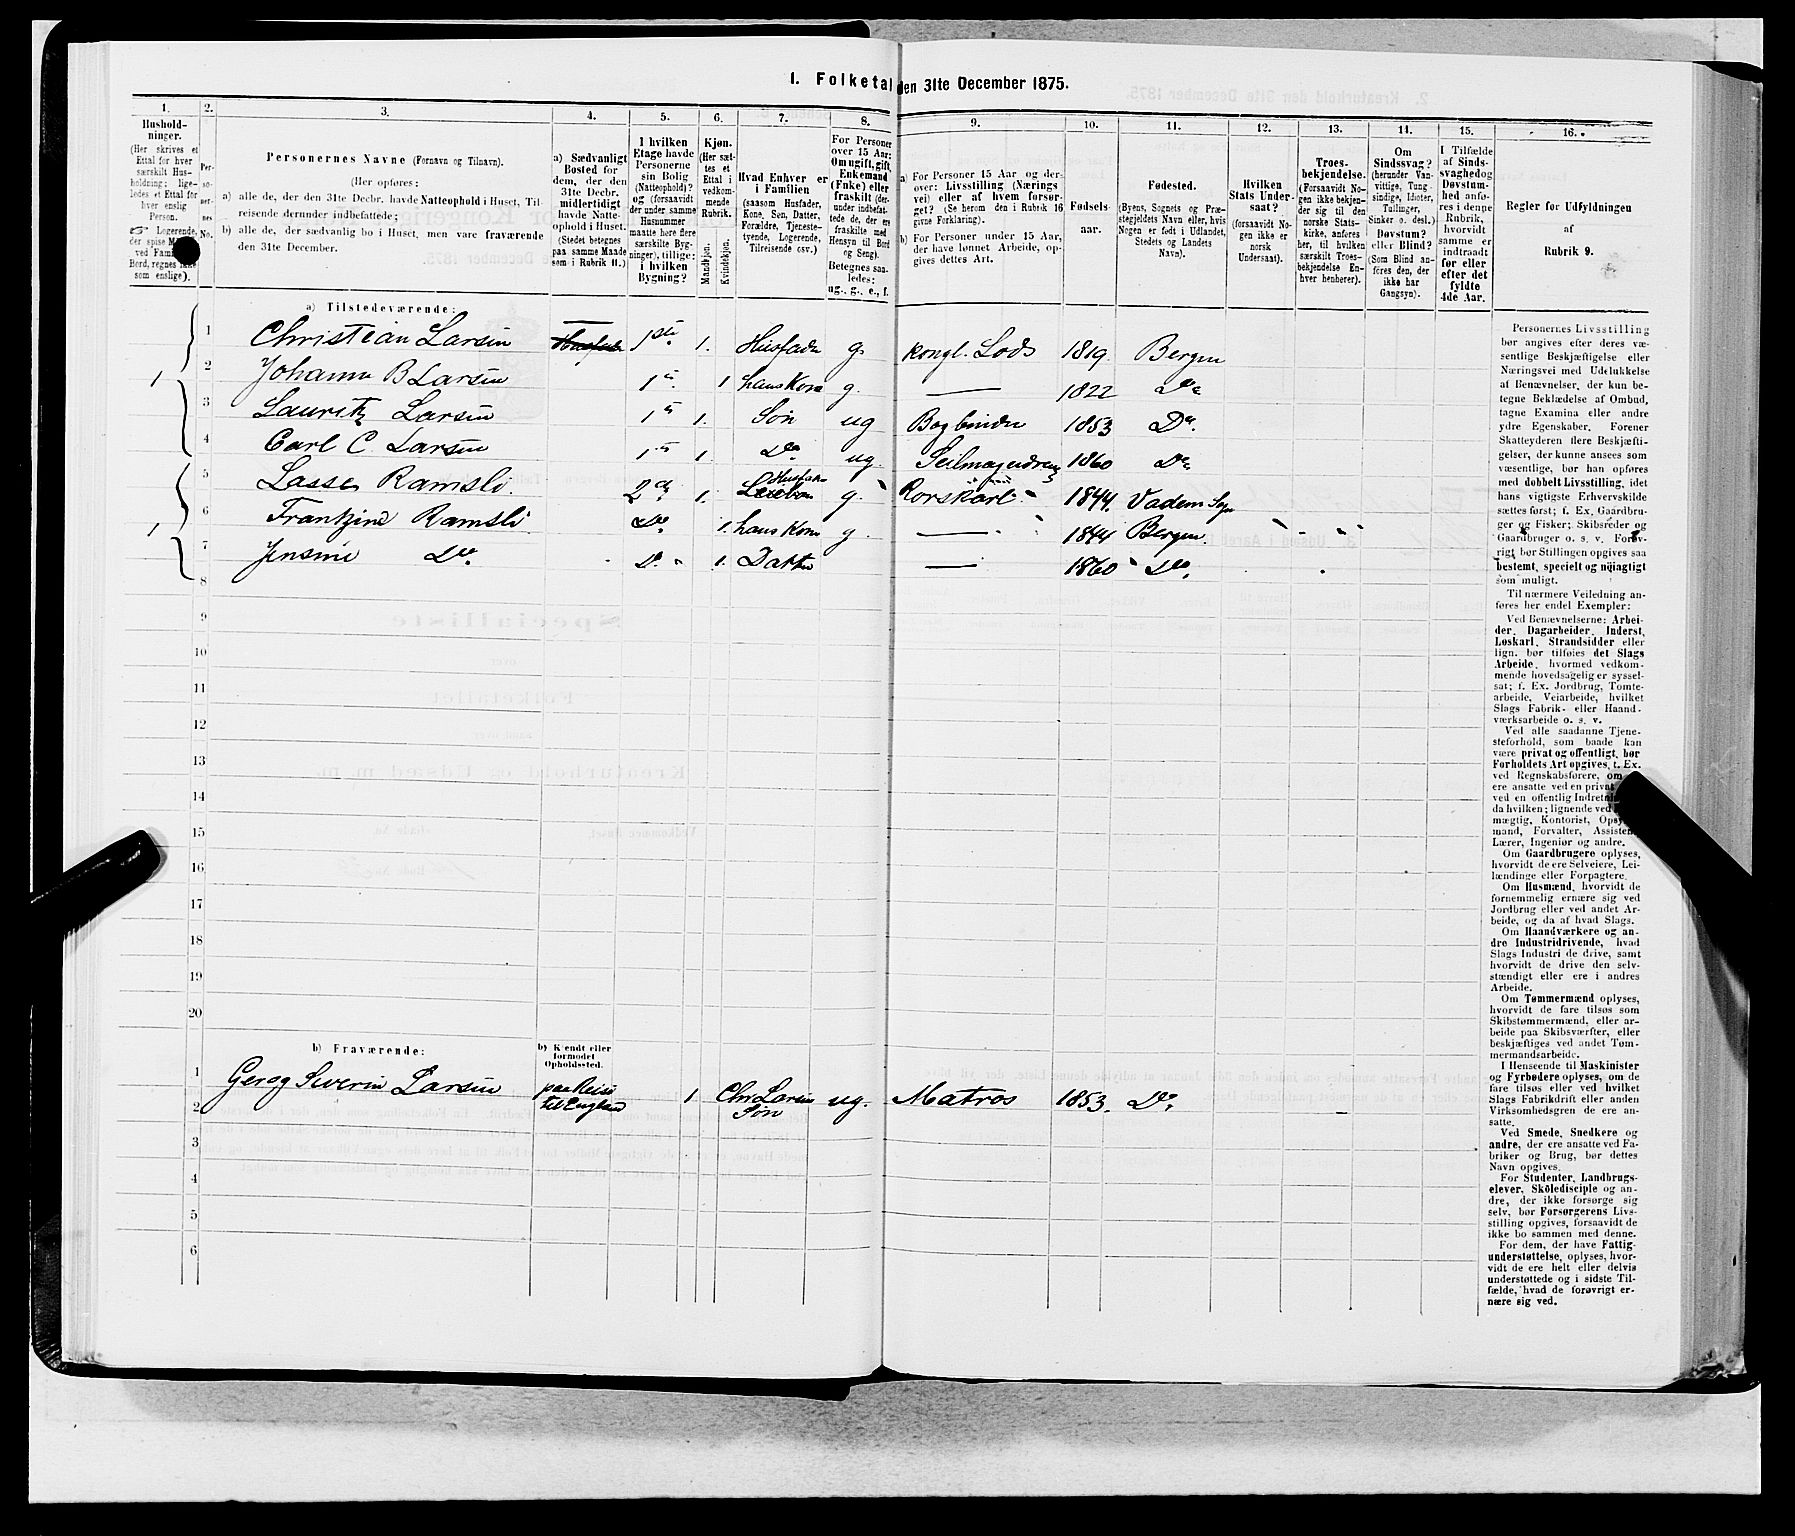 1. Folketal den 31te December 1875.
1. 2. 3. 4. 5. 6. 7. 8. 9. 10. 11. 12. 13. 14. 15. 16.
Hushold-
ninger.
(Her skrives et
Ettal for hver
særskilt Hus-
holdning; lige-
ledes et Ettal for
hver enslig
Person.
☞ Logerende,
der spise
ved
Bord, regnes ikke
som enslige).
Per-
so-
ner-
nes
No.
Personernes Navne (Fornavn og Tilnavn).
(Her opføres:
a) alle de, der den 31te Decbr. havde Natteophold i Huset, Til-
reisende derunder indbefattede;
b) alle de, der sædvanlig bo i Huset, men vare fraværende
den 31te December.
a) Sædvanligt
Bosted for
dem, der den
31te Decbr.
midlertidigt
havde Natte-
ophold i Huset.
(Stedet betegnes
paa samme Maade
som i Rubrik 11.)
I hvilken
Etage havde
Personerne
sin Bolig
(Natteophold)?
og (forsaavidt
der under samme
Husnummer
maatte høre flere
særskilte Byg-
ninger), tillige:
i hvilken
Bygning?
Kjøn.
(Her sæt-
tes et
Ettal i
vedkom-
mende
Rubrik.
Mandkjøn.
Kvindekjøn.
Hvad Enhver er
i Familien
(saasom Husfader,
Kone, Søn, Datter,
Forældre, Tjeneste-
tyende, Logerende,
Tilreisende osv.)
For Personer
over 15 Aar:
Om ugift, gift,
Enkemand
(Enke) eller
fraskilt
(derunder indbefat-
tede de, der ere
fraskilte med
Hensyn til Bord
og Seng).
Betegnes saa-
ledes:
ug., g., e., f.
a) For Personer 15 Aar og der-
over: Livsstilling (Nærings
vei) eller af hvem forsør-
get? (Se herom den i Rubrik 16
givne Forklaring).
b) For Personer under 15 Aar,
der have lønnet Arbeide, op-
gives dettes Art.
Fødsels-
aar.
Fødested.
(Byens, Sognets og Præ-
stegjeldets Navn eller, hvis
Nogen er født i Udlandet,
Stedets og Landets
Navn).
Hvilken
Stats Under-
saat?
(forsaavidt No-
gen ikke er
norsk
Undersaat).
Troes-
bekjendelse.
(Forsaavidt No-
gen ikke bekjen-
der sig til den
norske Stats-
kirke, anføres
her, til hvilken
særskilt Troes-
bekjendelse En-
hver henhører).
Om
Sindssvag?
(herunder Van-
vittige, Tung-
sindige, Idioter,
Tullinger,
Sinker o. desl.)
Døvstum?
eller Blind?
(Som Blind an-
føres den, der
ikke har
Gangsyn).
I Tilfælde
af Sinds-
svaghed og
Døvstum-
hed anfø-
res i denne
Rubrik,
hvorvidt
samme er
indtraadt
før eller
efter det
fyldte
4de Aar.
Regler for Udfyldningen
af
Rubrik 9.
a) Tilstedeværende:
1 Christian Larsen Husfader 1ste 1. Husfader g. kongl. Lods 1819. Bergen
2 Johanna B Larsen 1ste 1 hans Kone g. — 1822 Do
3 Lauritz Larsen 1ste 1. Søn ug Bogbinder 1853 Do.
4 Carl C Larsen 1ste 1. Do ug. 1860 Do
5 Lasse Ramsli. 2den 1. Husfader g. Rorskarl 1844. Vadem Sogn
6 Frantzine Ramsli Do 1. hans Kone g. — 1844 Bergen.
7 Jensine Do. Do 1. Datter — 1860 Do.
8
9
10
11
12
13
14
15
16
17
18
19
20
b) Fraværende:
b) Kjendt eller
formodet
Opholdssted.
1 Gerog Severin Larsen paa Reise
til England 1 Chr Larsen
Søn ug. Matros 1853. Do.
2
3
4
5
6
Personernes Livsstilling
bør angives efter deres væ-
sentlige Beskjæftigelse eller
Næringsvei med Udelukkelse
af Benævnelser, der kun be-
tegne Beklædelse af Ombud,
tagne Examina eller andre
ydre Egenskaber. Forener
Skatteyderen flere Beskjæfti-
gelser, der kunne ansees som
væsentlige, bør han opføres
med dobbelt Livsstilling, idet
hans vigtigste Erhvervskilde
sættes først; f. Ex. Gaardbru-
ger og Fisker; Skibsreder og
Gaardbruger o. s. v. Forøv-
rigt bør Stillingen opgives saa
bestemt, specielt og nøiagtigt
som muligt.
Til nærmere Veiledning an-
føres her endel Exempler:
Ved Benævnelserne: Arbei-
der, Dagarbeider, Inderst,
Løskarl, Strandsidder eller
lign. bør tilføies det Slags
Arbeide, hvormed vedkom-
mende hovedsagelig er syssel-
sat; f. Ex. Jordbrug, Tomte-
arbeide, Veiarbeide, hvilket
Slags Fabrik- eller Haand-
værksarbeide o. s. v.
Ved alle saadanne Tjene-
steforhold, som baade kan
være privat og offentligt, bør
Forholdets Art opgives, t. Ex.
ved Regnskabsførere, om
ere ansatte ved en privat
ved en offentlig Indretning
da hvilken; lignende ved
mægtig, Kontorist, Opsyns-
mand, Forvalter, Assistent,
Lærer, Ingeniør og andre.
Om Gaardbrugere oplyses,
hvorvidt de ere Selveiere, Lei-
lændinge eller Forpagtere.
Om Husmænd, hvorvidt de
fornemmelig ernære sig ved
Jordbrug eller ved andet Ar-
beide, og da af hvad Slags.
Om Haandværkere og an-
dre Industridrivende, hvad
Slags Industri de drive, samt
hvorvidt de drive den selv-
stændigt eller ere i andres
Arbeide.
Om Tømmermænd oplyses,
hvorvidt de fare tilsøs som
Skibstømmermænd, eller ar-
beide paa Skibsværfter, eller
beskjæftiges ved andet Tøm-
mermandsarbeide.
I Henseende til Maskinister
og Fyrbødere oplyses, om de
fare tilsøs eller ved hvilket
Slags Fabrikdrift eller anden
Virksomhedsgren de ere an-
satte.
Ved Smede, Snedkere og
andre, der ere ansatte ved Fa-
briker og Brug, bør dettes
Navn opgives.
For Studenter, Landbrugs-
elever, Skoledisciple og an-
dre, der ikke forsørge sig
selv, bør Forsørgerens Livs-
stilling opgives, forsaavidt de
ikke bo sammen med denne.
For dem, der have Fattig-
understøttelse, oplyses, hvor-
vidt de ere helt eller delvis
understøttede og i sidste Til-
fælde, hvad de forøvrigt er-
nære sig ved.